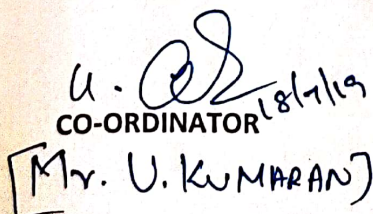 U. 18/7/19
CO-ORDINATOR
[Mr. U. KUMARAN]